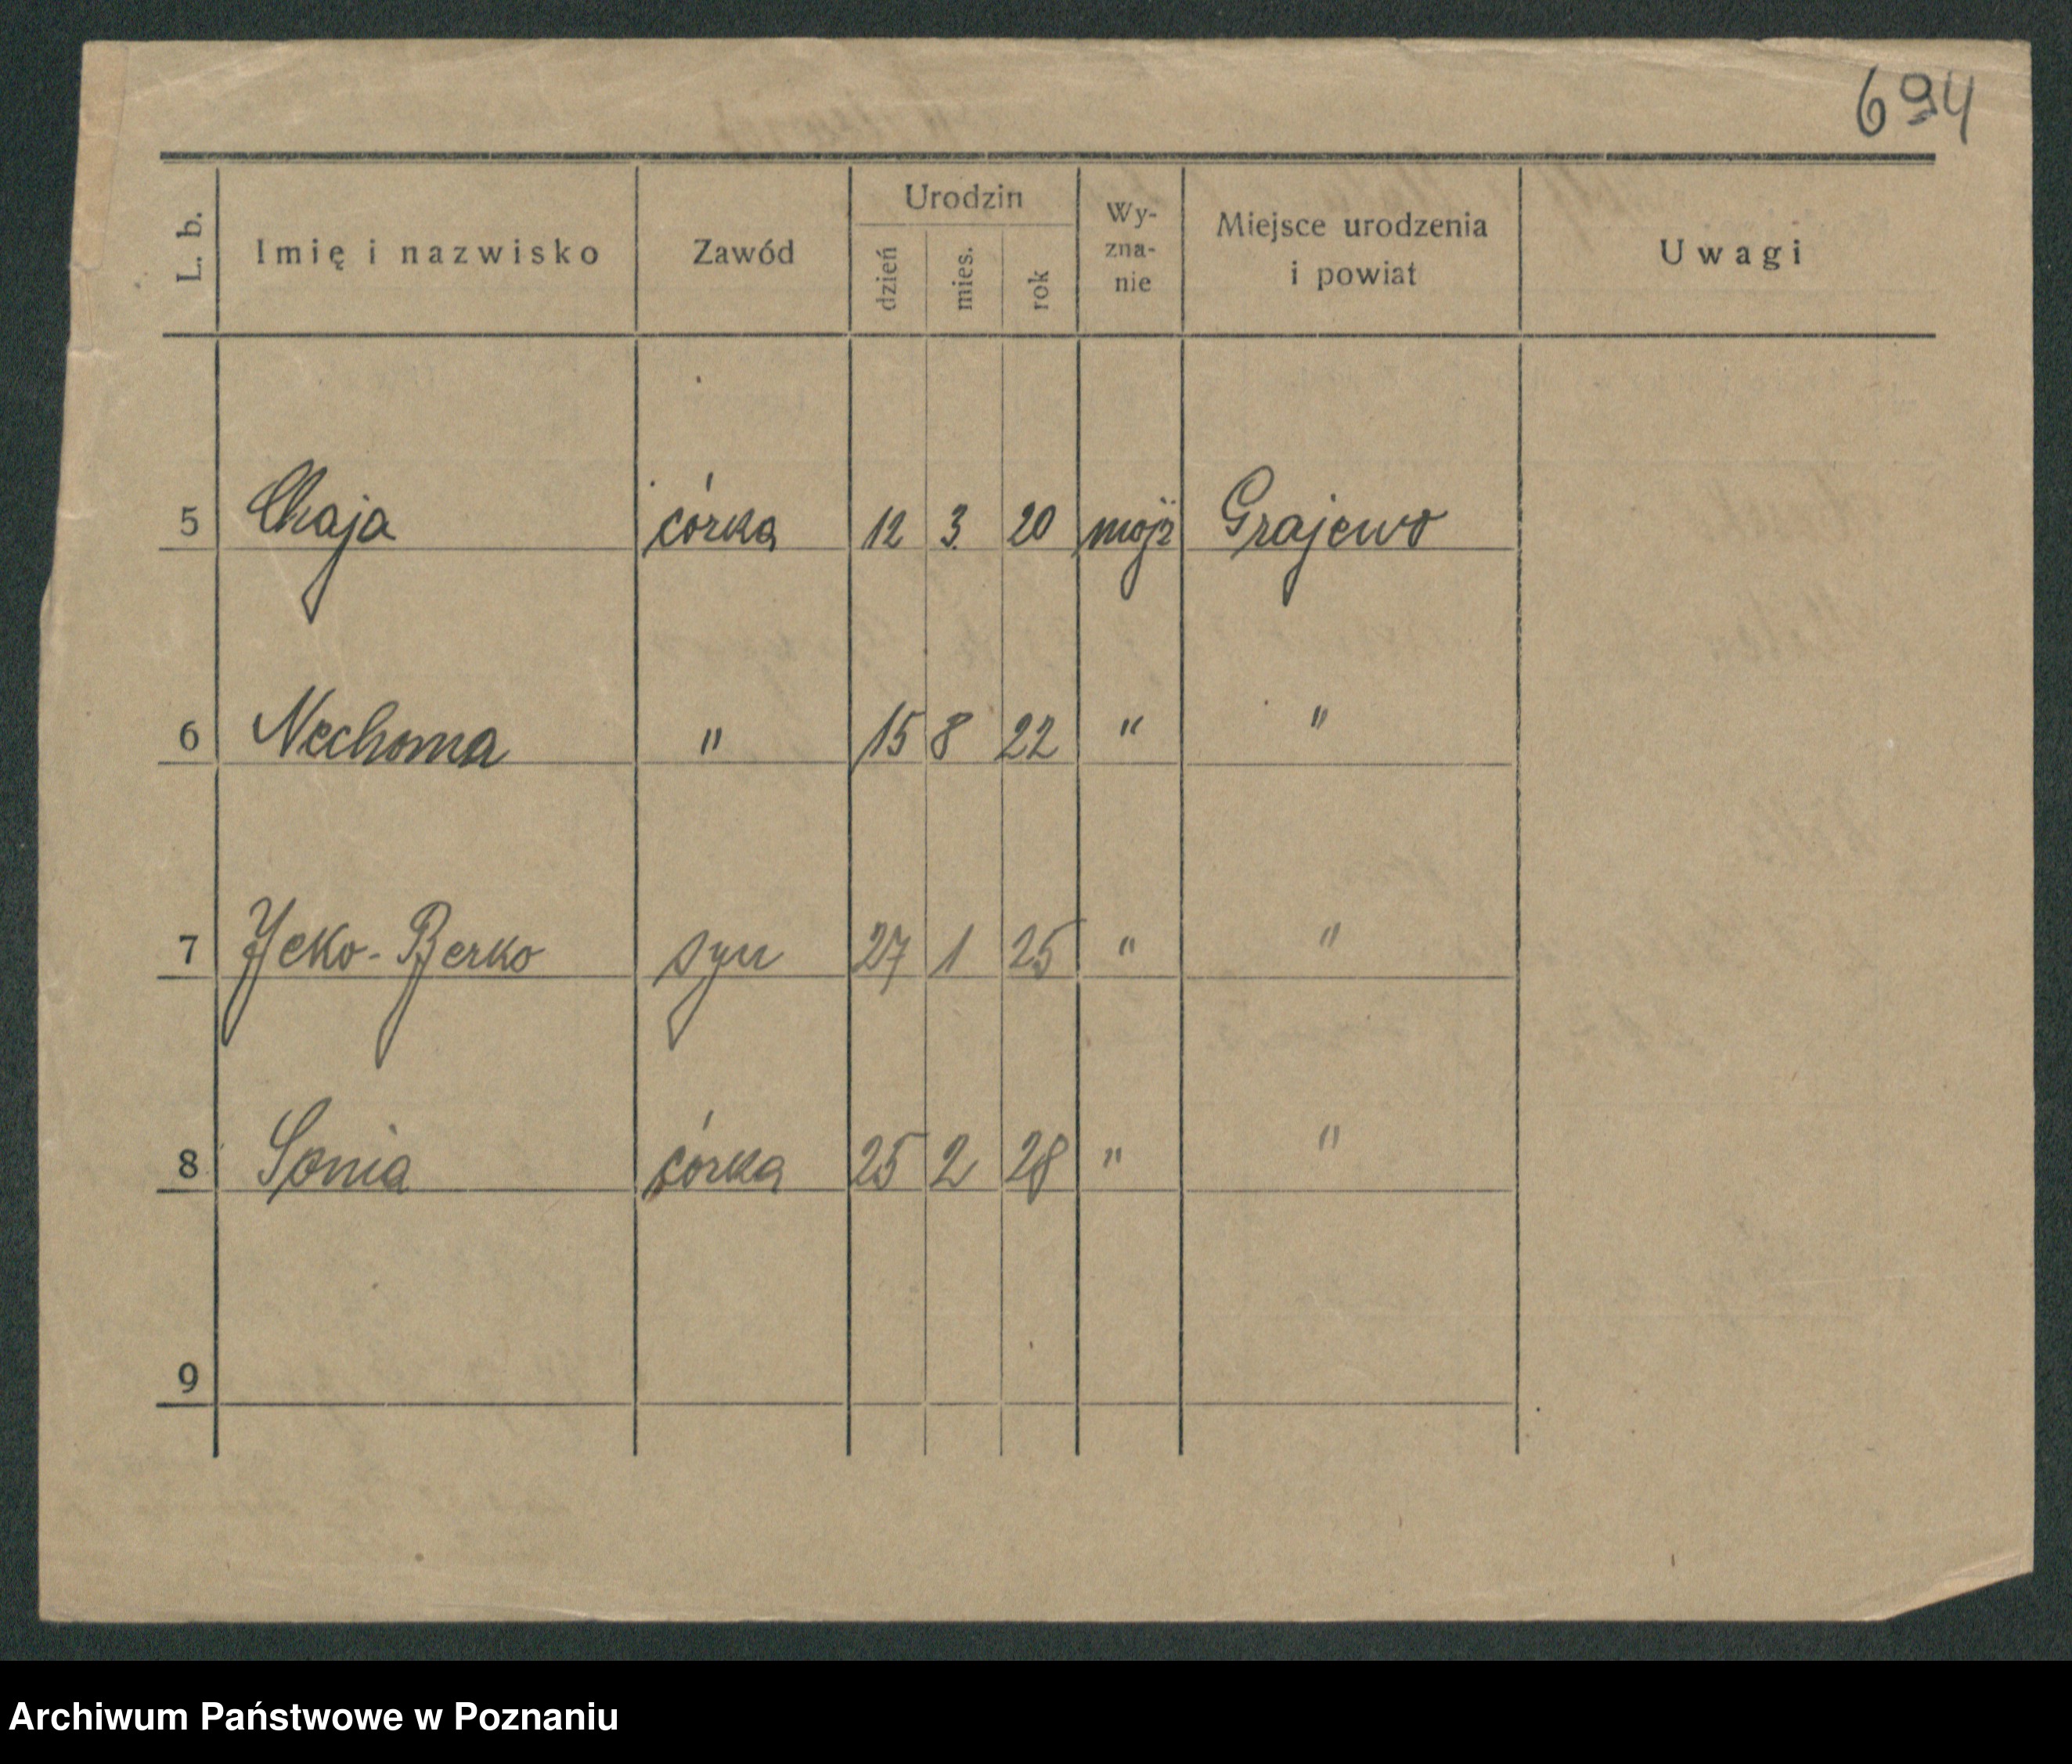 694
L. b. Imię i nazwisko Zawód Urodzin dzień mies. rok Wy-zna-nie Miejsce urodzenia i powiat Uwagi
5 Chaja córka 12 3. 20 mojż Grajewo
6 Nechoma " 15 8 22 " "
7 Jeko-Berko syn 27 1 25 " "
8 Sonia córka 25 2 28 " "
9
Archiwum Państwowe w Poznaniu